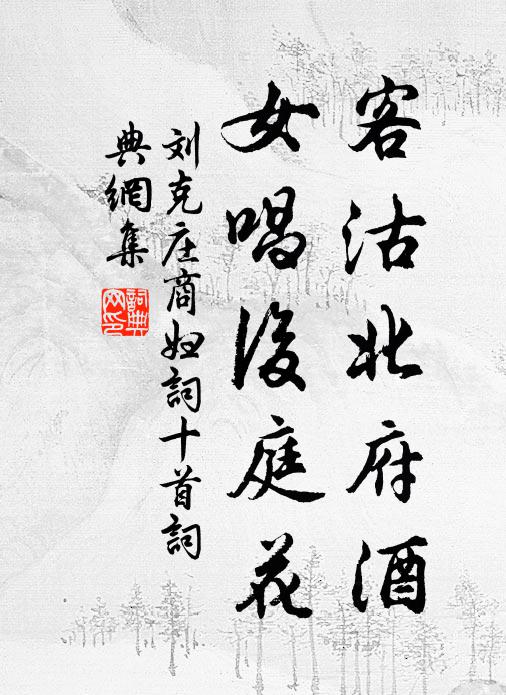 客沽北府酒
女唱後庭花
刘克庄商妇詞十首詞
典網集
詞典
网印